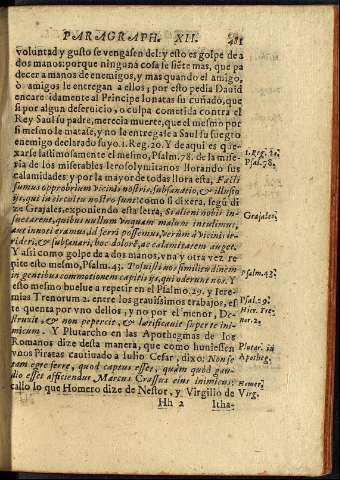 PARAGRAPH. XII. 481
voluntad y gusto se vengasen del: y esto es golpe de a
dos manos: porque ninguna cosa se siẽte mas, que pa
decer a manos de enemigos, y mas quando el amigo,
ò amigos le entregan a ellos; por esto pedia Dauid
encarecidamente al Principe Ionatas su cuñado, que
si por algun deseruicio, o culpa cometida contra el
Rey Saul su padre, merecia muerte, que el mesmo por
si mesmo le matase, y no le entregase a Saul su suegro
enemigo declarado suyo. 1. Reg. 20. Y de aqui es que
xarse lastimosamente el mesmo, Psalm. 78. de la mise-
ria de los miserables Ierosolymitanos llorando sus
calamidades: y por la mayor de todas llora esta, Facti
sumus opprobrium vicinis nostris, subsanatio, & illusio
ijs, qui in circuitu nostro sunt: como si dixera, segũ di
ze Grajales, exponiendo esta letra,
aut innoti eramus, id ferri possemus, verùm à vicinis ir-
rideri, & subsanari, hoc dolorẽ, ac calamitatem auget.
Y assi como golpe de a dos manos, vna y otra vez re
pite esto mesmo, Psalm. 43. Posuisti nos similitudinem
in gentibus commotionem capitis ijs, qui oderunt nos. Y
esto mesmo buelue a repetir en el Psalmo. 29. y Iere-
mias Trenorum 2. entre los grauissimos trabajos, es
te quenta por vno dellos, y no por el menor, De-
struxit, & non pepercit, & lætificauit super te ini-
micum. Y Plutarcho en las Apothegmas de los
Romanos dize desta manera, que como huuiessen
vnos Piratas cautiuado a Iulio Cesar, dixo: Non se
tam egre ferre, quod captus esset, quàm quòd gau-
dio esset afficiendus Marcus Crassus eius inimicus:
callo lo que Homero dize de Nestor, y Virgilio de
Hh 2 Itha-
1. Reg. 20.
Psal. 78.
Grajales.
Psalm. 43.
Psal. 29.
Plutar. in
Apotheg.
Homer.
Virg.